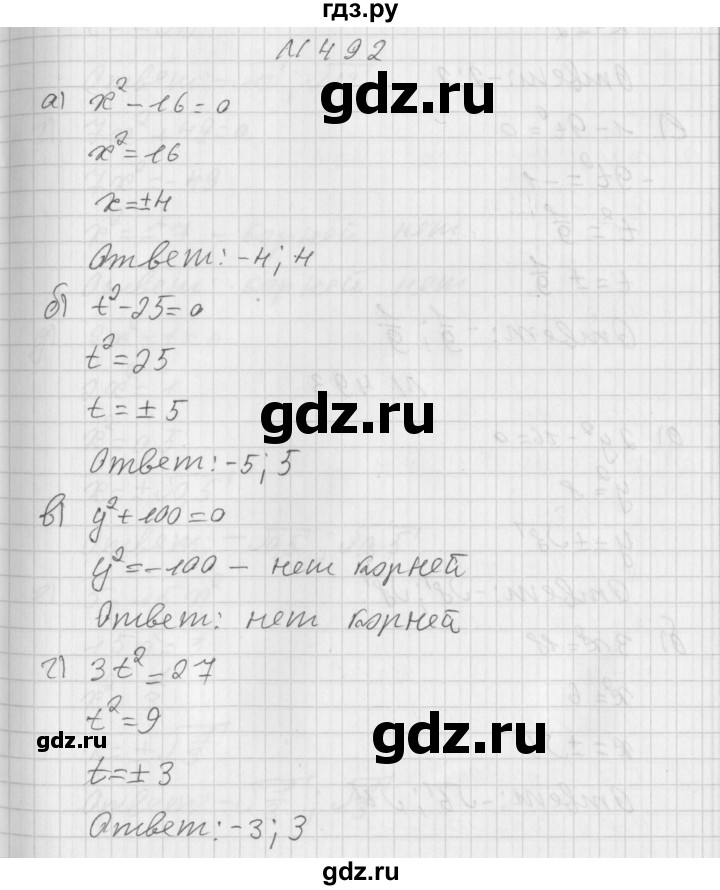 гдз.ру
№492
а) x²-16=0
x²=16
x=±4
Ответ: -4; 4
б) t²-25=0
t²=25
t=±5
gdz.ru
Ответ: -5; 5
в) y²+100=0
y²=-100 - нет корней
Ответ: нет корней
г) 3t²=27
t²=9
gdz.ru
gdz.ru
t=±3
Ответ: -3; 3
gdz.ru